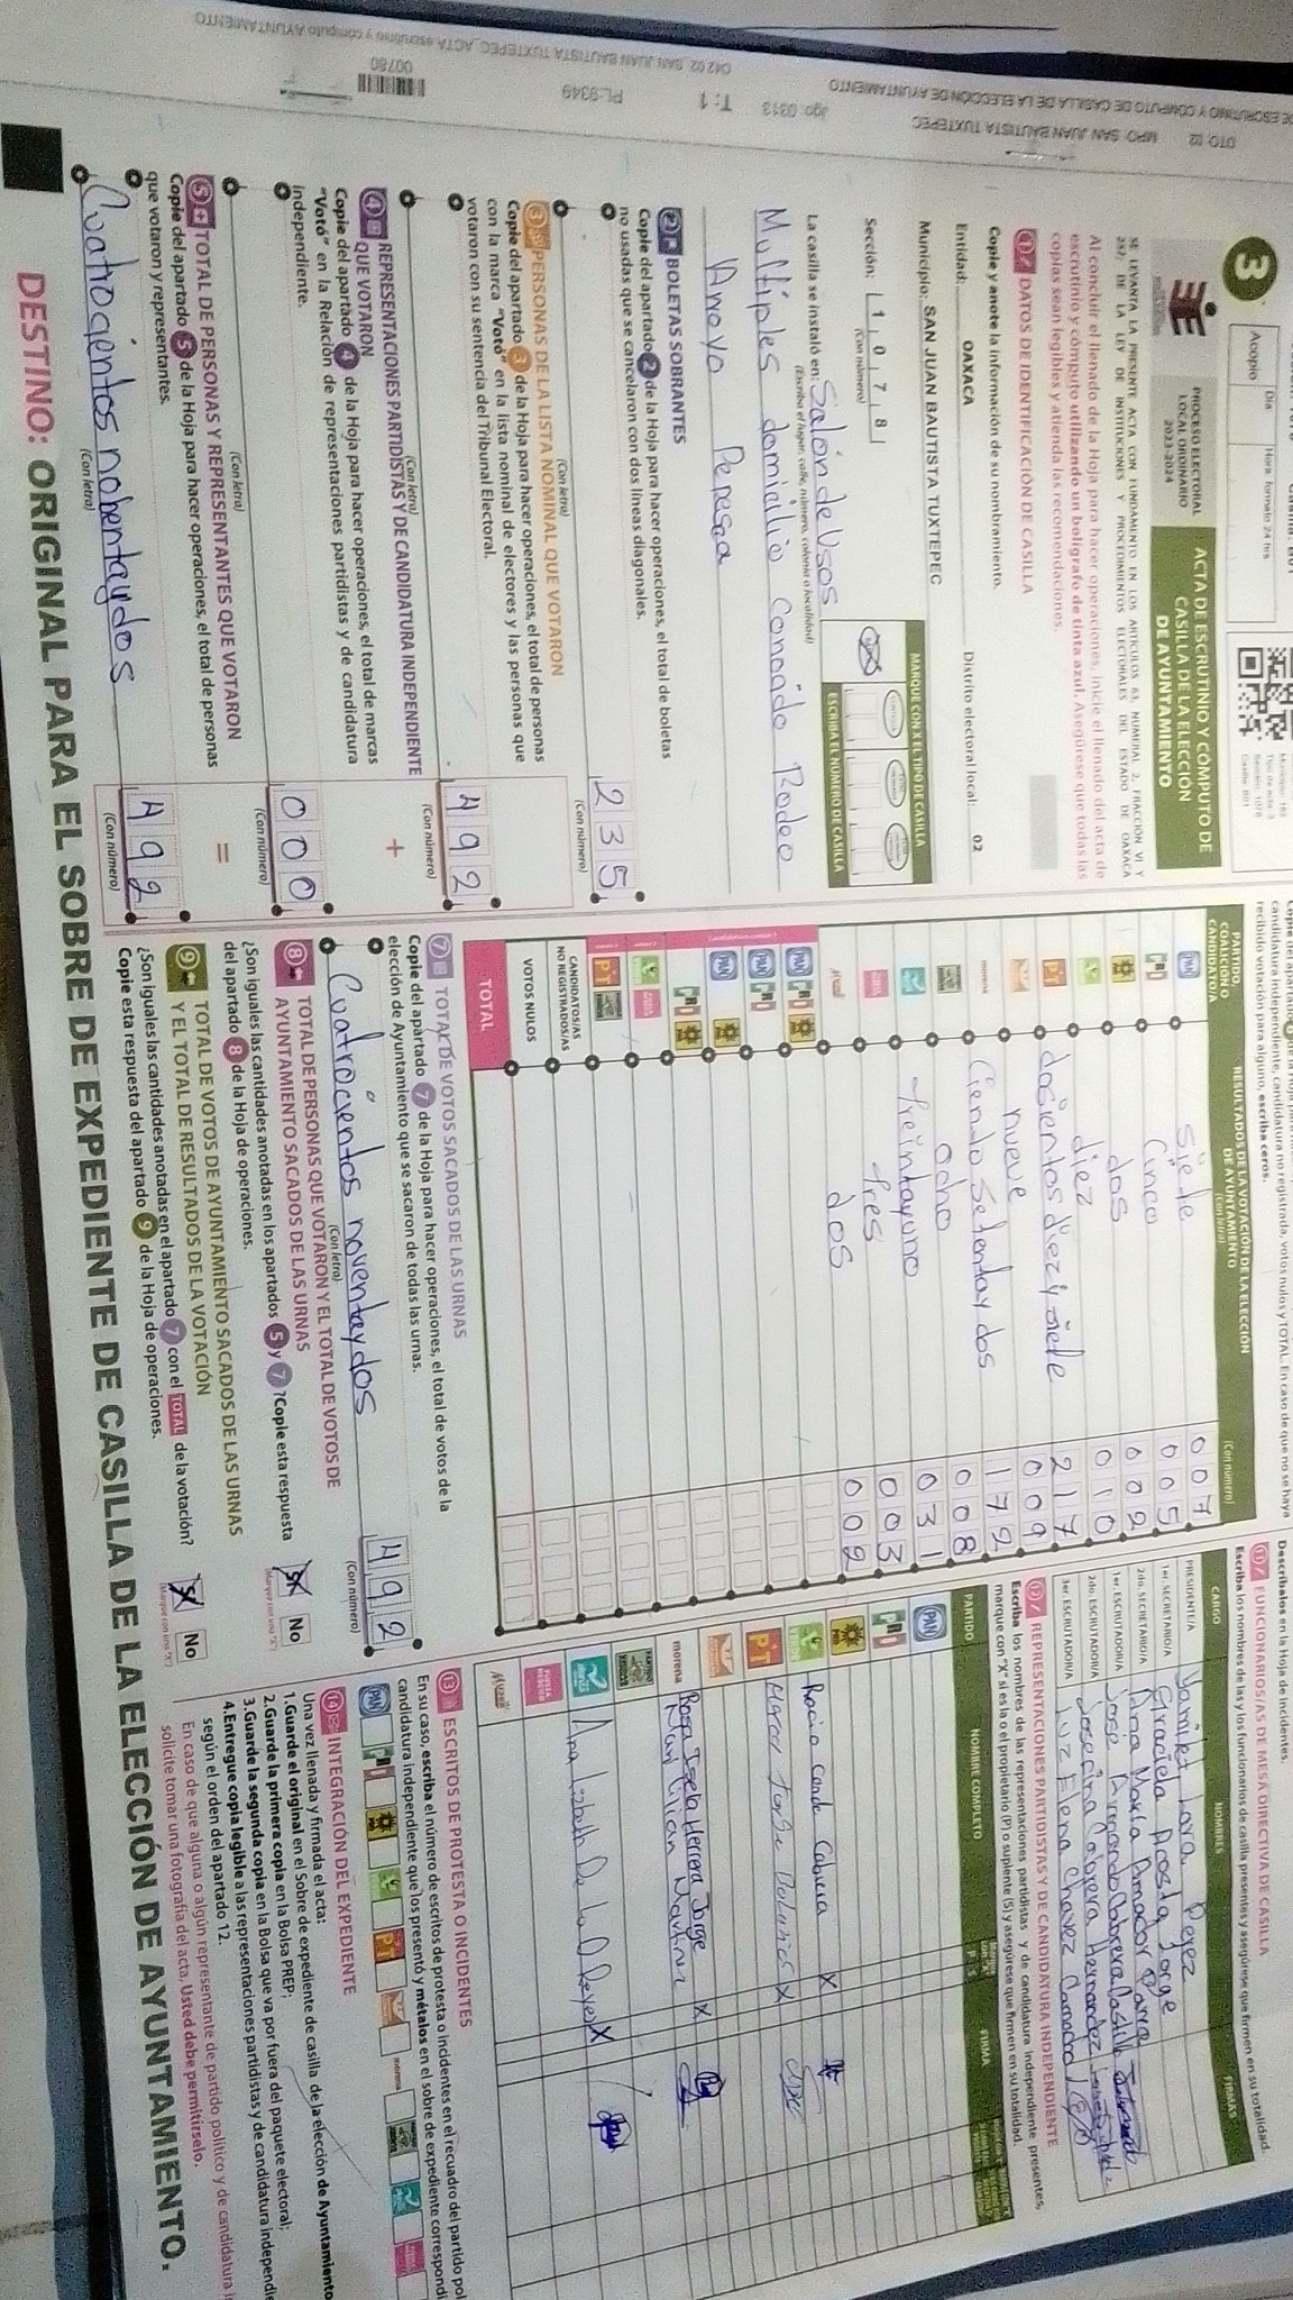 DTO: 02 MPO: SAN JUAN BAUTISTA TUXTEPEC
DE ESCRUTINIO Y CÓMPUTO DE CASILLA DE LA ELECCIÓN DE AYUNTAMIENTO
T: 1
PL-9349
042 02 SAN JUAN BAUTISTA TUXTEPEC_ACTA escrutinio y cómputo AYUNTAMIENTO
00780
3
Acopio
Día
Hora formato 24 hrs
PROCESO ELECTORAL
LOCAL ORDINARIO
2023-2024
ACTA DE ESCRUTINIO Y CÓMPUTO DE
CASILLA DE LA ELECCIÓN
DE AYUNTAMIENTO
SE LEVANTA LA PRESENTE ACTA CON FUNDAMENTO EN LOS ARTÍCULOS 63, NUMERAL 2, FRACCIÓN VI Y
257; DE LA LEY DE INSTITUCIONES Y PROCEDIMIENTOS ELECTORALES DEL ESTADO DE OAXACA
Al concluir el llenado de la Hoja para hacer operaciones, inicie el llenado del acta de
escrutinio y cómputo utilizando un bolígrafo de tinta azul. Asegúrese que todas las
copias sean legibles y atienda las recomendaciones.
1 DATOS DE IDENTIFICACIÓN DE CASILLA
Copie y anote la información de su nombramiento.
Entidad: OAXACA Distrito electoral local: 02
Municipio: SAN JUAN BAUTISTA TUXTEPEC
Sección: 1 0 7 8
(Con número)
MARQUE CON X EL TIPO DE CASILLA
ESCRIBA EL NÚMERO DE CASILLA
La casilla se instaló en: Salón de Usos
(Escriba el lugar, calle, número, colonia o localidad)
Multiples domicilio Conocido Rodeo
Arroyo Pepesca
2 BOLETAS SOBRANTES
Copie del apartado 2 de la Hoja para hacer operaciones, el total de boletas
no usadas que se cancelaron con dos líneas diagonales.
2 3 5
(Con letra) (Con número)
3 PERSONAS DE LA LISTA NOMINAL QUE VOTARON
Copie del apartado 3 de la Hoja para hacer operaciones, el total de personas
con la marca "Votó" en la lista nominal de electores y las personas que
votaron con su sentencia del Tribunal Electoral.
4 9 2
(Con letra) (Con número)
+
4 REPRESENTACIONES PARTIDISTAS Y DE CANDIDATURA INDEPENDIENTE
QUE VOTARON
Copie del apartado 4 de la Hoja para hacer operaciones, el total de marcas
"Votó" en la Relación de representaciones partidistas y de candidatura
independiente.
0 0 0
(Con letra) (Con número)
=
5 TOTAL DE PERSONAS Y REPRESENTANTES QUE VOTARON
Copie del apartado 5 de la Hoja para hacer operaciones, el total de personas
que votaron y representantes.
Cuatrocientos nobentaydos 4 9 2
(Con letra) (Con número)
candidatura independiente, candidatura no registrada, votos nulos y TOTAL. En caso de que no se haya
recibido votación para alguno, escriba ceros.
PARTIDO,
COALICIÓN O
CANDIDATO/A
RESULTADOS DE LA VOTACIÓN DE LA ELECCIÓN
DE AYUNTAMIENTO
(Con letra)
(Con número)
PAN Siete 0 0 7
PRI Cinco 0 0 5
dos 0 0 2
diez 0 1 0
PT dosientos diez y siete 2 1 7
nueve 0 0 9
morena Ciento Setentay dos 1 7 2
ocho 0 0 8
treintayuno 0 3 1
tres 0 0 3
dos 0 0 2
CANDIDATOS/AS
NO REGISTRADOS/AS
VOTOS NULOS
TOTAL
7 TOTAL DE VOTOS SACADOS DE LAS URNAS
Copie del apartado 7 de la Hoja para hacer operaciones, el total de votos de la
elección de Ayuntamiento que se sacaron de todas las urnas.
Cuatrocientos noventaydos 4 9 2
(Con letra) (Con número)
8 TOTAL DE PERSONAS QUE VOTARON Y EL TOTAL DE VOTOS DE
AYUNTAMIENTO SACADOS DE LAS URNAS
¿Son iguales las cantidades anotadas en los apartados 5 y 7 ? Copie esta respuesta
del apartado 8 de la Hoja de operaciones.
Sí No
9 TOTAL DE VOTOS DE AYUNTAMIENTO SACADOS DE LAS URNAS
Y EL TOTAL DE RESULTADOS DE LA VOTACIÓN
¿Son iguales las cantidades anotadas en el apartado 7 con el TOTAL de la votación?
Copie esta respuesta del apartado 9 de la Hoja de operaciones.
Sí No
Descríbalos en la Hoja de incidentes.
11 FUNCIONARIOS/AS DE MESA DIRECTIVA DE CASILLA
Escriba los nombres de las y los funcionarios de casilla presentes y asegúrese que firmen en su totalidad.
CARGO NOMBRES FIRMAS
PRESIDENTE/A Yamilet Lara Perez
1er. SECRETARIO/A Graciela Acosta Jorge
2do. SECRETARIO/A Ana María Amador
1er. ESCRUTADOR/A Jose Armando Cabrera Castillo
2do. ESCRUTADOR/A Josefina Cabrera Hernandez
3er. ESCRUTADOR/A Luz Elena Chavez Camacho
12 REPRESENTACIONES PARTIDISTAS Y DE CANDIDATURA INDEPENDIENTE
Escriba los nombres de las representaciones partidistas y de candidatura independiente presentes,
marque con "X" si es la o el propietario (P) o suplente (S) y asegúrese que firmen en su totalidad.
PARTIDO NOMBRE COMPLETO FIRMA
PAN
PRI
Rocio Conde Cabrera X
PT X
morena Rosa Isela Herrera Jorge X
Ana Lizbeth De la O Reyes X
13 ESCRITOS DE PROTESTA O INCIDENTES
En su caso, escriba el número de escritos de protesta o incidentes en el recuadro del partido
candidatura independiente que los presentó y métalos en el sobre de expediente
14 INTEGRACIÓN DEL EXPEDIENTE
Una vez llenada y firmada el acta:
1.Guarde el original en el Sobre de expediente de casilla de la elección de Ayuntamiento
2.Guarde la primera copia en la Bolsa PREP;
3.Guarde la segunda copia en la Bolsa que va por fuera del paquete electoral;
4.Entregue copia legible a las representaciones partidistas y de candidatura
según el orden del apartado 12.
En caso de que alguna o algún representante de partido político y de candidatura
solicite tomar una fotografía del acta, Usted debe permitírselo.
DESTINO: ORIGINAL PARA EL SOBRE DE EXPEDIENTE DE CASILLA DE LA ELECCIÓN DE AYUNTAMIENTO.